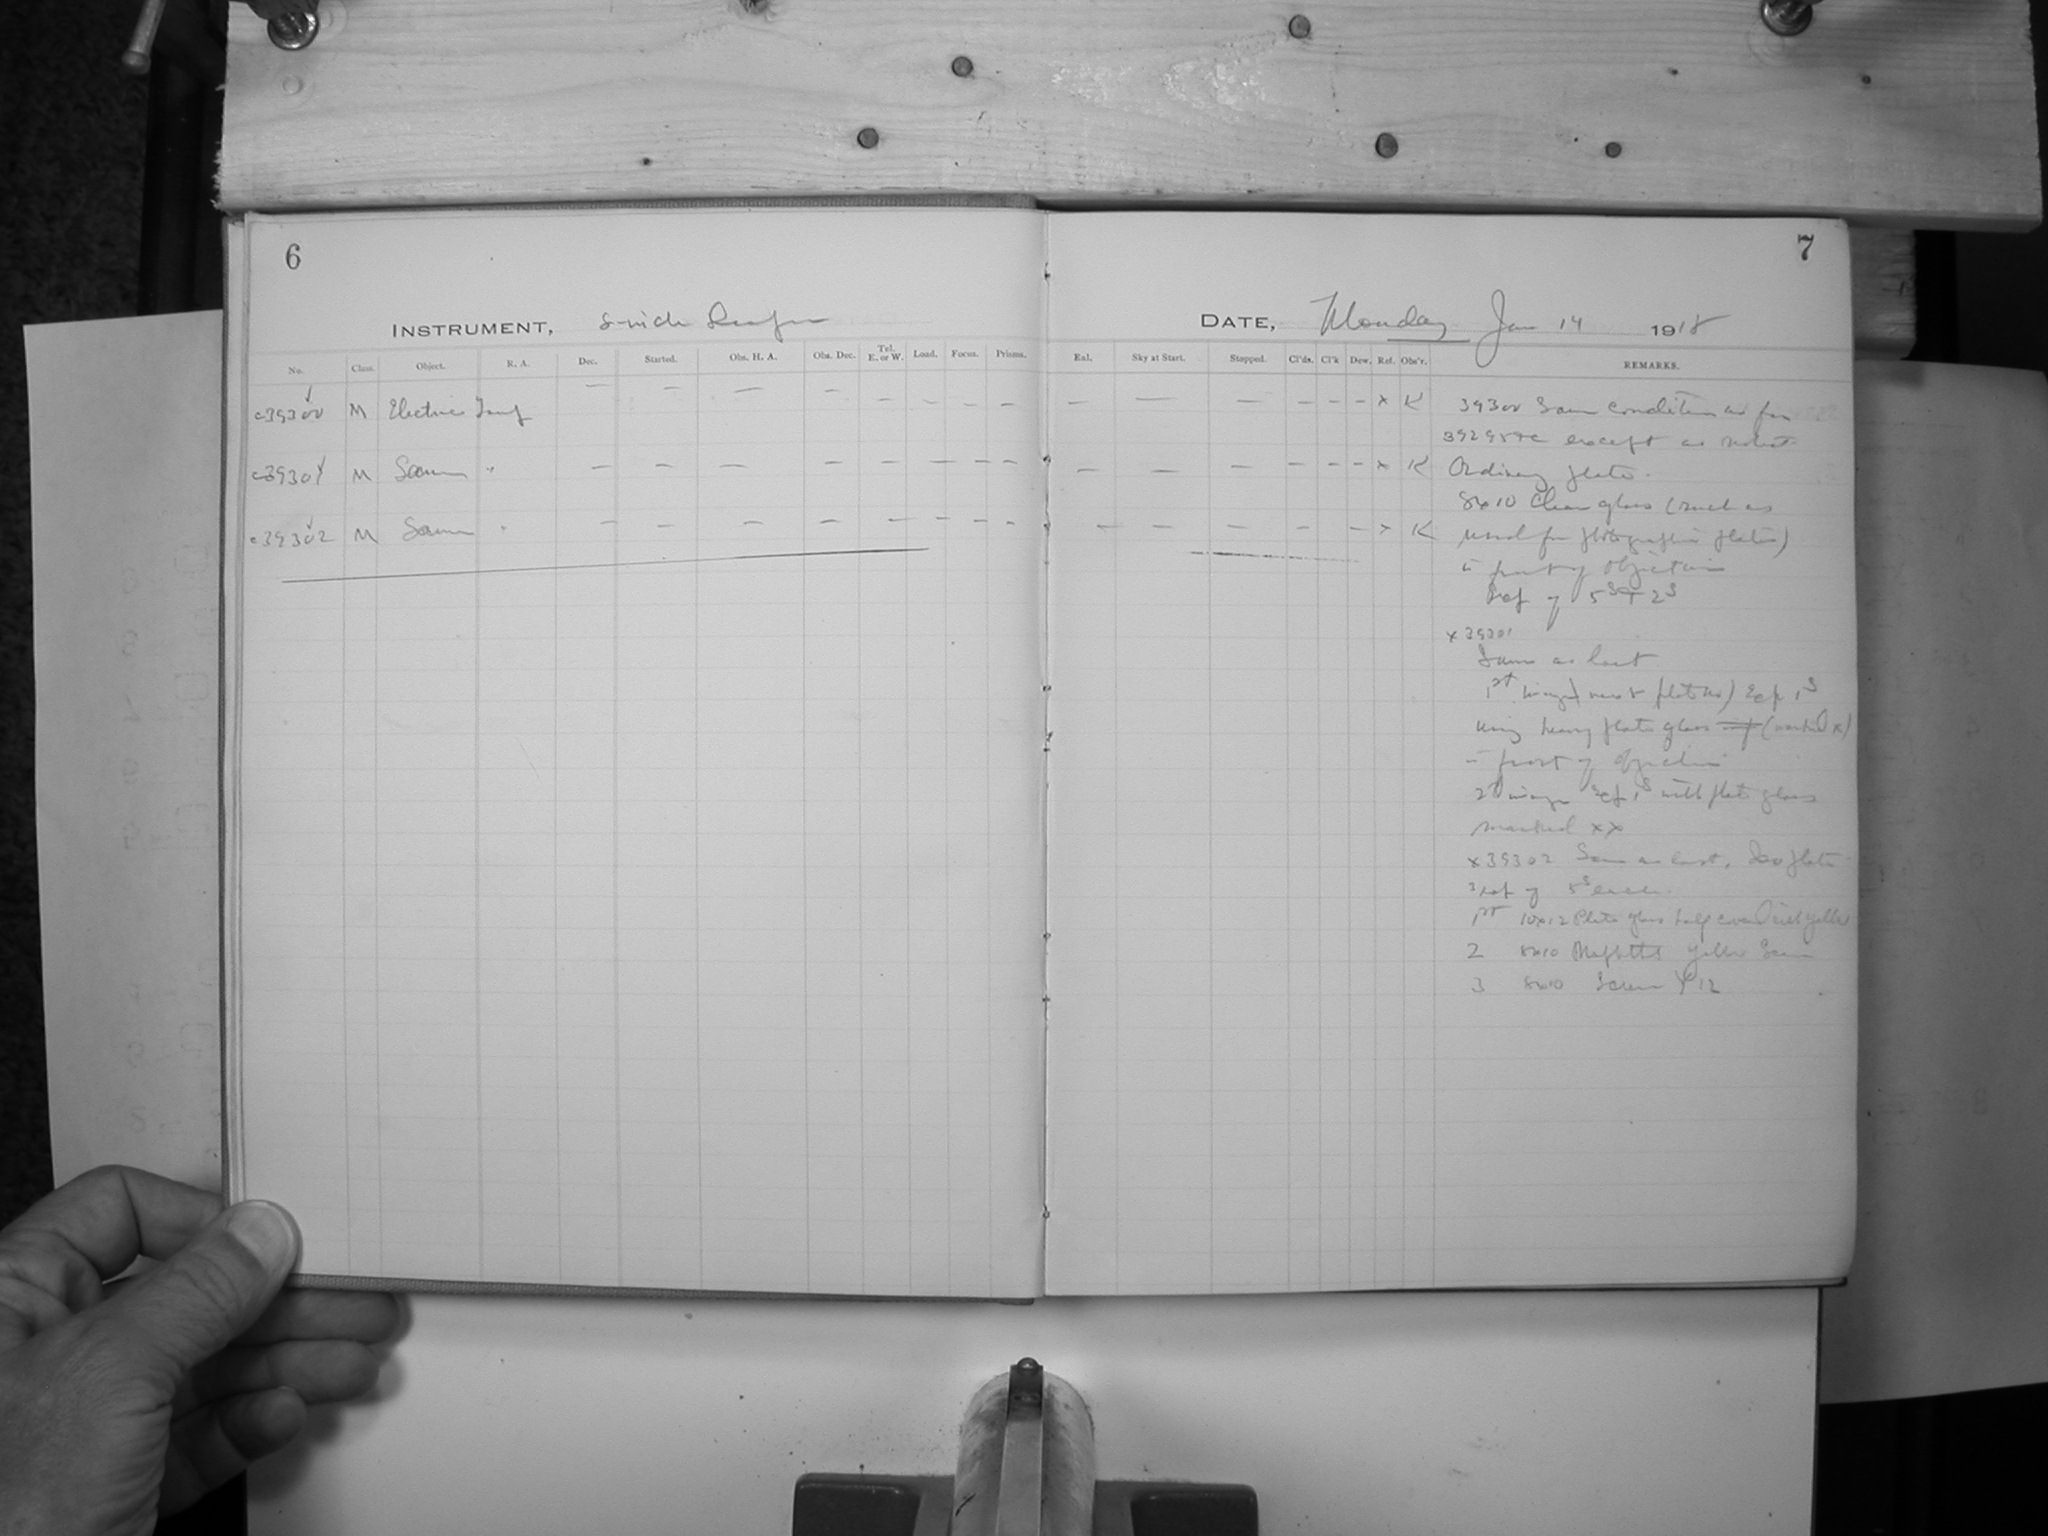 6
INSTRUMENT, 8-inch
No. Class. Object. R. A. Dec. Started. Obs. H. A. Obs. Dec. Tel. E. or W. Load. Focus. Prisms.
c39300 M Electric — — — — — — — —
c39301 M Same " — — — — — — — —
c39302 M Same " — — — — — — — —
7
DATE, Monday Jan 14 1918
Eal. Sky at Start. Stopped. Cl'ds. Cl'k Dew. Ref. Obs'r. REMARKS.
— — — — — — x K
— — — — — — x K
— — — — — x K
39300 Same conditions as for
except as noted
Ordinary plate.
8x10 Clear glass (such as
used for photographic plates)
in front of objective
Exp of 5s + 2s
x 39301
Same as last
1st image (next plate no) Exp 1s
using heavy plate glass (marked x)
in front of objective
2d image Exp 1s with plate glass
marked xx
x 39302 Same as last, Iso plate
3 exp of 5s each.
1st 10x12 Plate glass half covered with yellow
2 8x10 yellow Screen
3 8x10 Screen 12